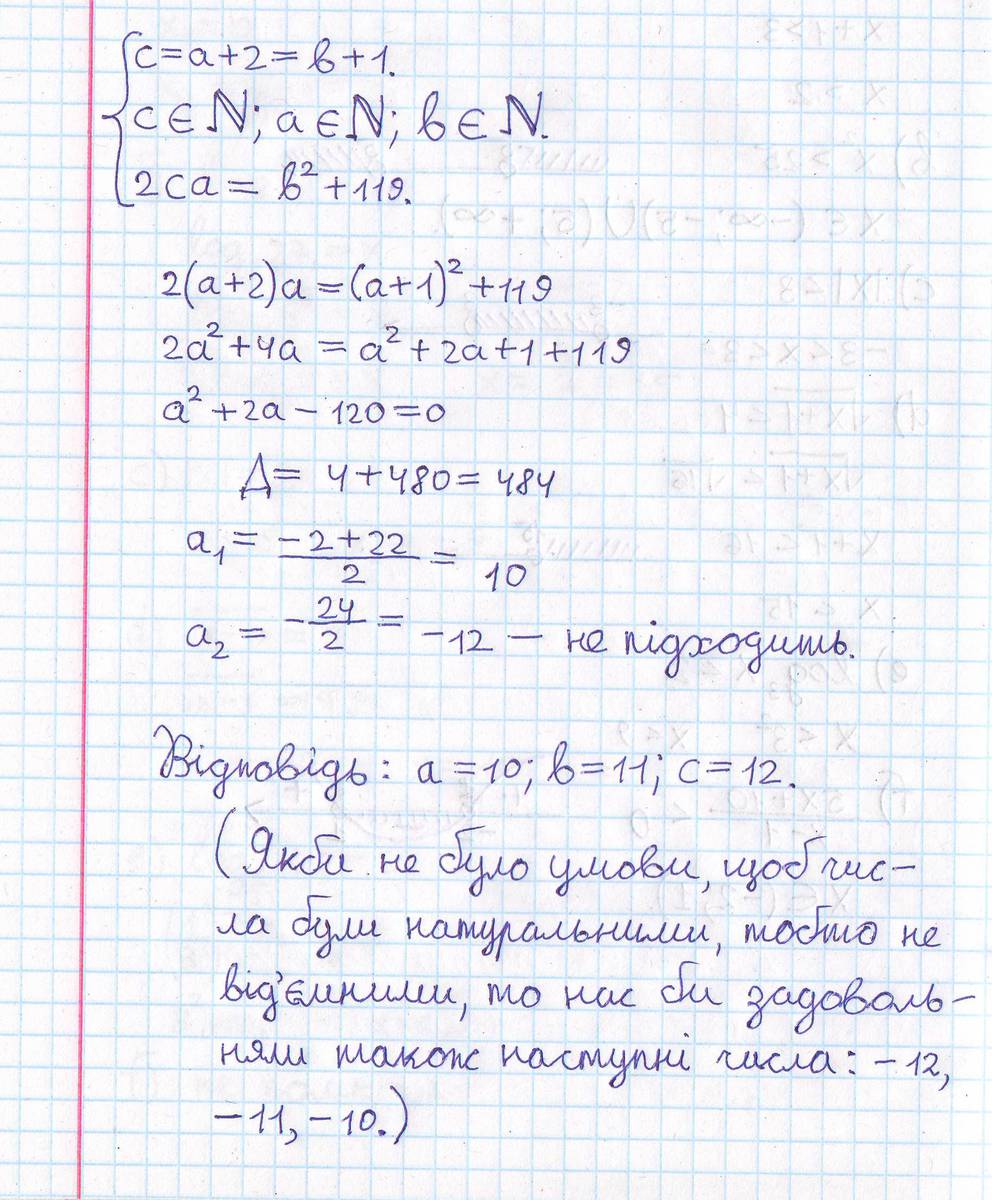 c=a+2=b+1.
c∈ℕ; a∈ℕ; b∈ℕ.
2ca = b²+119.
2(a+2)a=(a+1)²+119
2a²+4a = a²+2a+1+119
a²+2a-120=0
Д= 4+480=484
a₁ = (-2+22)/2 = 10
a₂ = -24/2 = -12 - не підходить.
Відповідь: a=10; b=11; c=12.
(Якби не було умови, щоб чис-
ла були натуральними, тобто не
від'ємними, то нас би задоволь-
няли також наступні числа: -12,
-11, -10.)